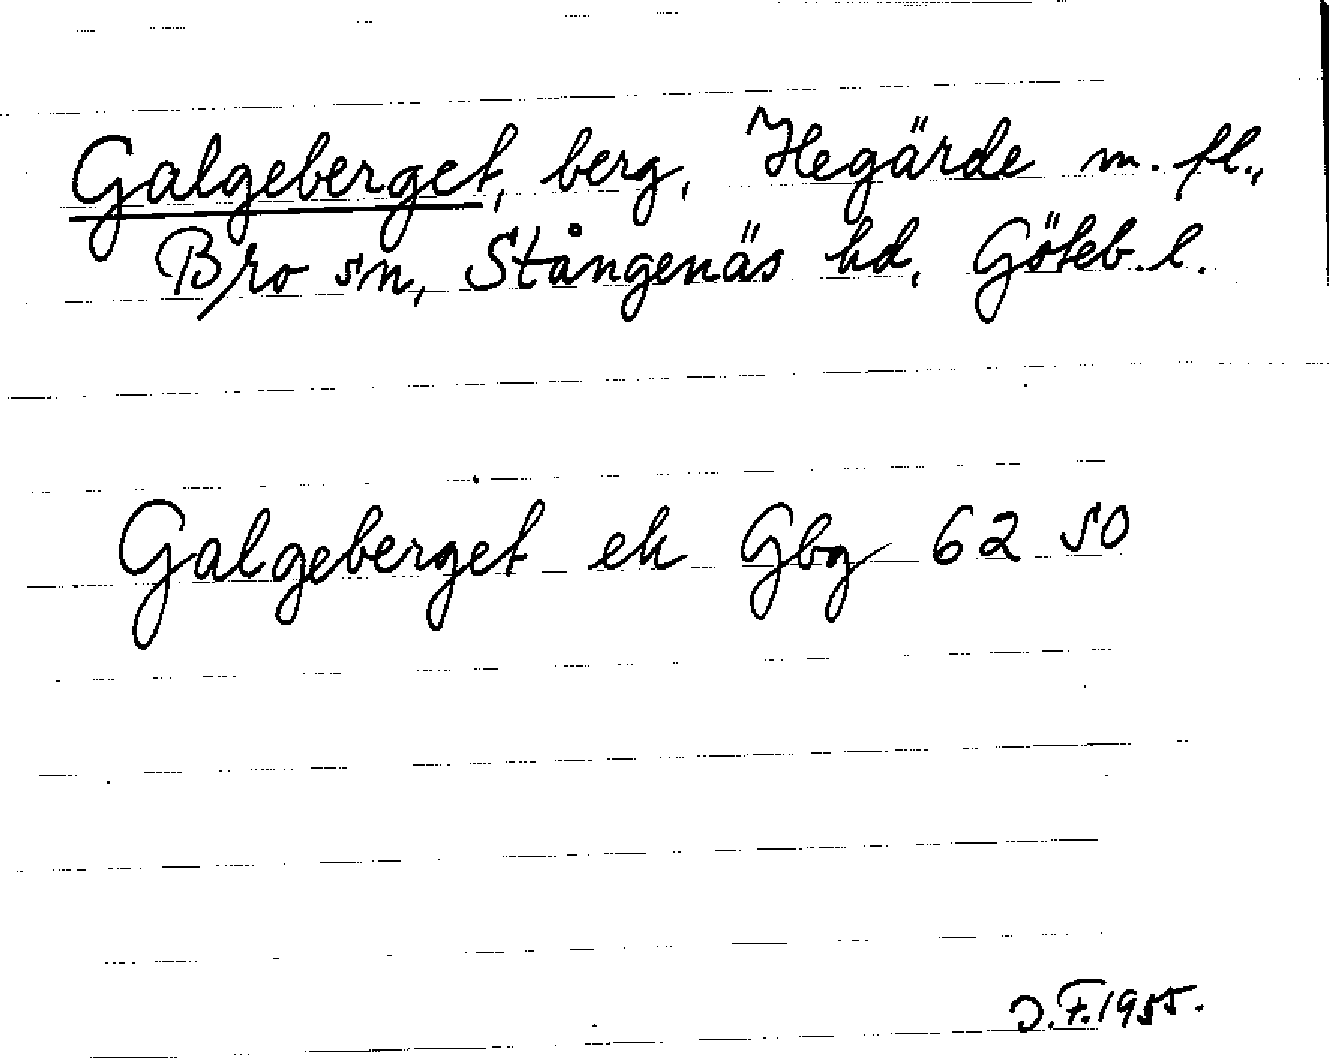 Galgeberget, berg, Hegärde m. fl.,
Bro sn, Stångenäs hd, Göteb. l.
Galgeberget ek Gbg 62 50
J.F. 1955.